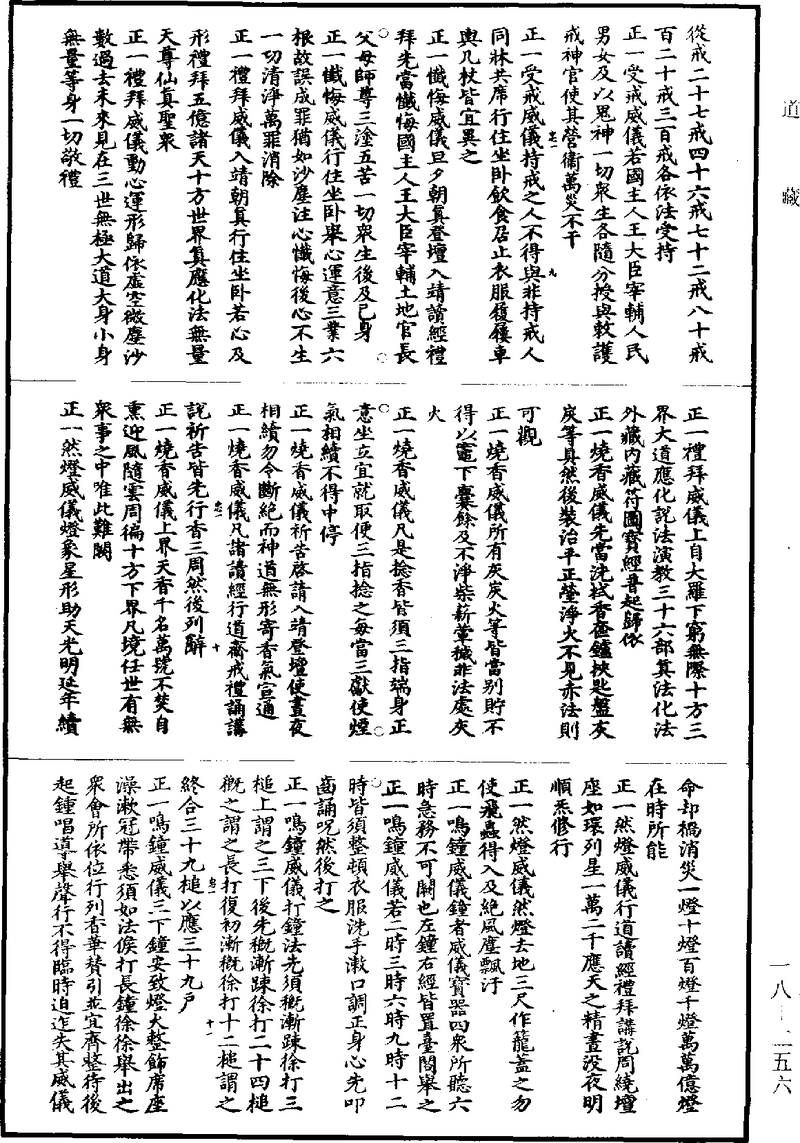 道藏
從戒二十七戒四十六戒七十二戒八十戒
百二十戒三百戒各依法受持
正一受戒威儀若國主人王大臣宰輔人民
男女及以鬼神一切眾生各隨分授與教護
戒神官使其營衛萬災不干
正一受戒威儀持戒之人不得與非持戒人
同牀共席行住坐卧飲食居止衣服履屨車
輿几杖皆宜異之
正一懺悔威儀旦夕朝真登壇入靖讀經禮
拜先當懺悔國主人王大臣宰輔土地官長
父母師尊三塗五苦一切眾生後及己身
正一懺悔威儀行住坐卧舉心運意三業六
根故誤成罪猶如沙塵注心懺悔後心不生
一切清淨萬罪消除
正一禮拜威儀入靖朝真行住坐卧若心及
形禮拜五億諸天十方世界真應化法無量
天尊仙真聖眾
正一禮拜威儀動心運形歸依虛空微塵沙
數過去未來見在三世無極大道大身小身
無量等身一切敬禮
正一禮拜威儀上自大羅下窮無際十方三
界大道應化說法演教三十六部真法化法
外藏內藏符圖寶經普起歸依
正一燒香威儀先當洗拭香奩鑪挾匙盤灰
炭等具然後裝治平正瑩淨火不見赤法則
可觀
正一燒香威儀所有灰炭火等皆當別貯不
得以竈下爨餘及不淨柴薪葷穢非法處灰
火
正一燒香威儀凡是捻香皆須三指端身正
意坐立宜就取便三指捻之每當三獻使煙
氣相續不得中停
正一燒香威儀祈告啓請入靖登壇使晝夜
相續勿令斷絕而神道無形寄香氣宣通
正一燒香威儀凡諸讀經行道齋戒禮誦講
說祈告皆先行香三周然後列辭
正一燒香威儀上界天香千名萬號不焚自
熏迎風隨雲周徧十方下界凡境任世有無
眾事之中唯此難闕
正一然燈威儀燈象星形助天光明延年續
命却禍消災一燈十燈百燈千燈萬萬億燈
在時所能
正一然燈威儀行道讀經禮拜講說周繞壇
座如環列星一萬二千應天之精晝没夜明
順悉修行
正一然燈威儀然燈去地三尺作籠蓋之勿
使飛蟲得入及絕風塵飄汙
正一鳴鐘威儀鐘者威儀寶器四眾所聽六
時急務不可闕也左鐘右經皆置臺閣舉之
正一鳴鐘威儀若二時三時六時九時十二
時皆須整頓衣服洗手漱口調正身心先叩
齒誦呪然後打之
正一鳴鐘威儀打鐘法先須概漸踈徐打三
槌上謂之三下後先概漸踈徐打二十四槌
概之謂之長打復初漸概徐打十二槌謂之
終合三十九槌以應三十九户
正一鳴鐘威儀三下鐘安致燈火整飾席座
澡漱冠帶悉須如法俟打長鐘徐徐舉出之
眾會所依位行列香華贊引並宜齊整待後
起鍾唱導舉聲行不得臨時迫迮失其威儀
一八—二五六